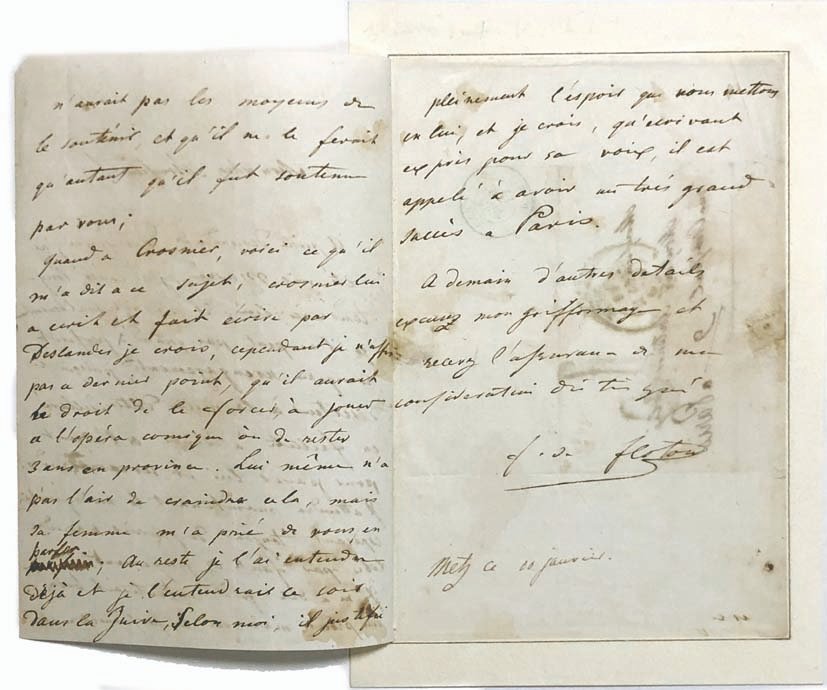 n'aurait pas les moyens de
le soutenir et qu'il ne le feroit
qu'autant qu'il fut soutenu
par vous;
Quand a Crosnier, voici ce qu'il
m'a dit a ce sujet, crosnier lui
a ecrit et fait écrire par
Deslandes je crois, cependant je n'affir
pas ce dernier point, qu'il aurait
le droit de le forcer, à jouer
a l'opéra comique ou de rester
3 ans en province. Lui même n'a
pas l'air de craindre cela, mais
sa femme m'a prié de vous en
parler; Au reste je l'ai entendu
déjà et je l'entendrait ce soir
dans la Juive, Selon moi il justifie
pleinement l'espoir que nous mettons
en lui, et je crois, qu'ecrivant
expres pour sa voix, il est
appelé à avoir un très grand
succès a Paris.
A demain d'autres details
excusez mon griffonnage et
recevez l'assurance de ma
consideration
f. de flotow
Metz ce 10 janvier.